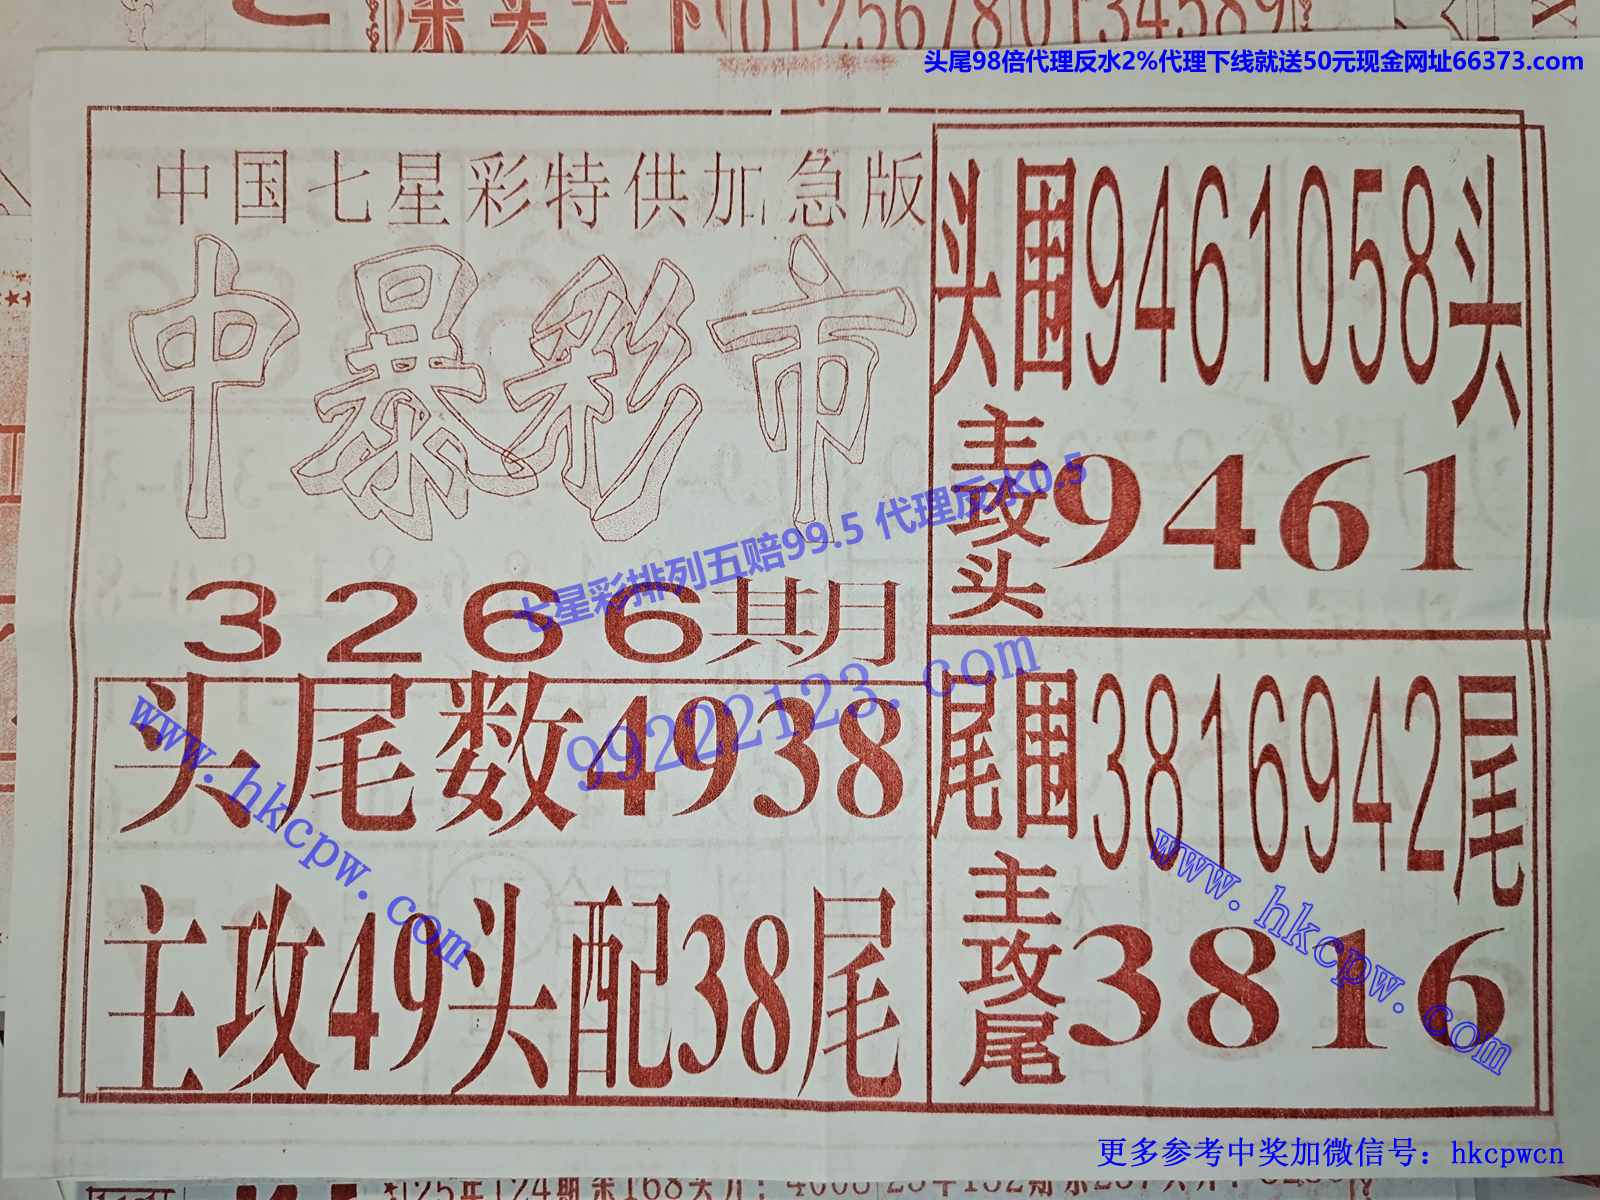 0125678
0134589
头尾98倍代理反水2%代理下线就送50元现金网址66373.com
中国七星彩特供加急版
中暴彩市
3266期
头尾数4938
主攻49头配38尾
头围9461058头
主攻头9461
尾围3816942尾
主攻尾3816
七星彩排列五赔99.5 代理反水0.5
99222123.com
www.hkcpw.com
www.hkcpw.com
更多参考中奖加微信号：hkcpwcn